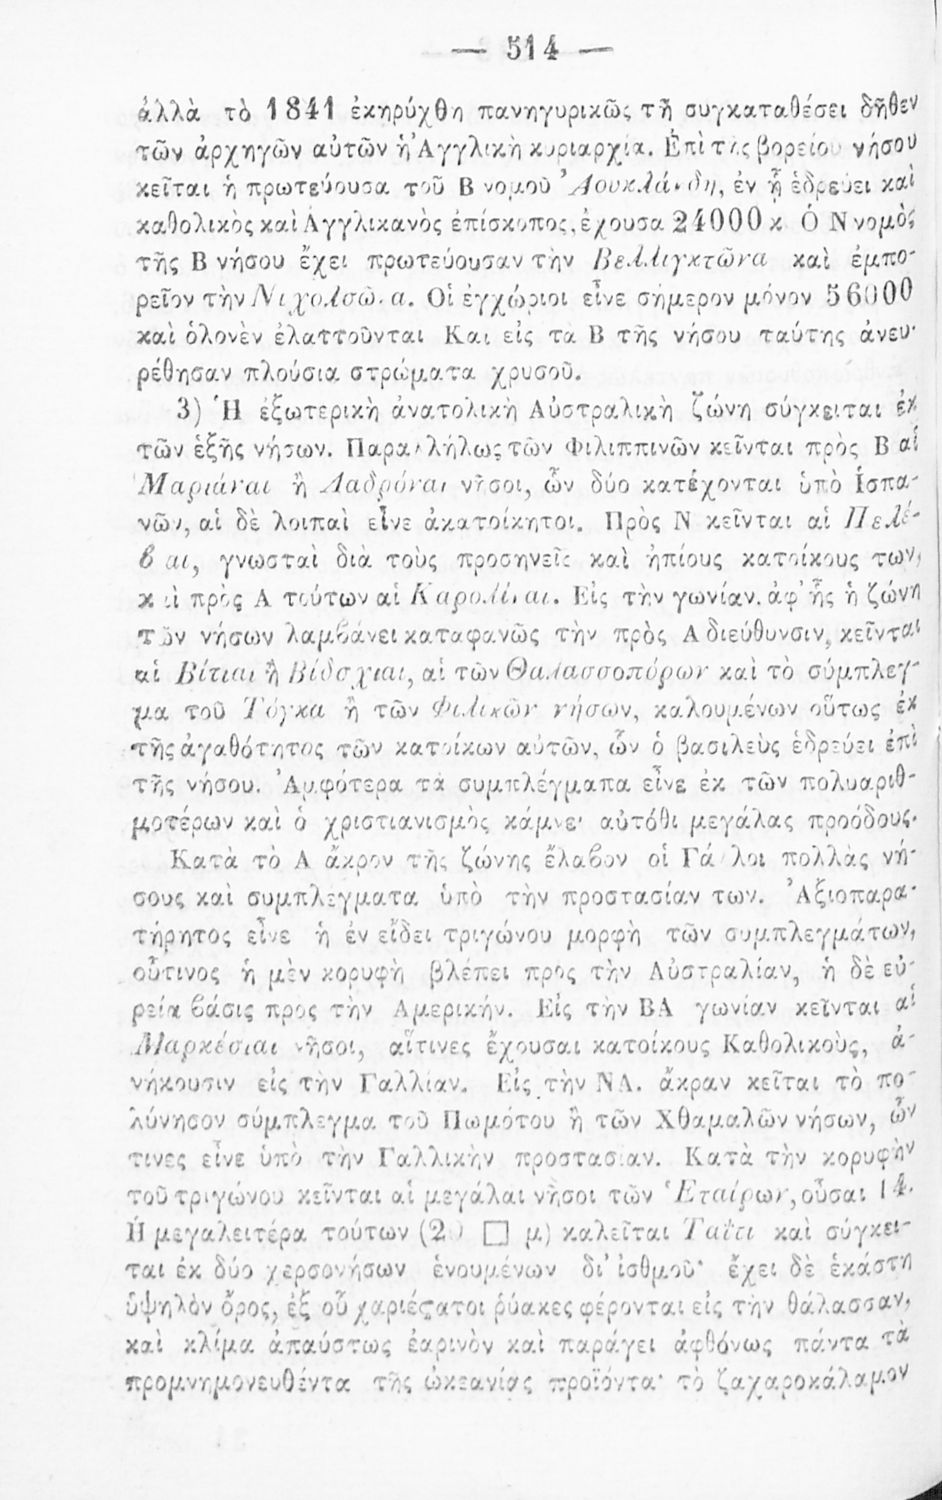 — 514 —
ἀλλὰ τὸ 1841 ἐκηρύχθη πανηγυρικῶς τῇ συγκαταθέσει δῆθεν
τῶν ἀρχηγῶν αὐτῶν ἡ Ἀγγλικὴ κυριαρχία. Ἐπὶ τῆς βορείου νήσου
κεῖται ἡ πρωτεύουσα τοῦ Β νομοῦ Ἀουκλάνδη, ἐν ᾗ ἑδρεύει καὶ
καθολικὸς καὶ Ἀγγλικανὸς ἐπίσκοπος, ἔχουσα 24000 κ Ὁ Ν νομὸς
τῆς Β νήσου ἔχει πρωτεύουσαν τὴν Βελλιγκτῶνα καὶ ἐμπο-
ρεῖον τὴν Νιχολσῶνα. Οἱ ἐγχώριοι εἶνε σήμερον μόνον 56000
καὶ ὁλονὲν ἐλαττοῦνται Και εἰς τὰ Β τῆς νήσου ταύτης ἀνευ-
ρέθησαν πλούσια στρώματα χρυσοῦ.
3) Ἡ ἐξωτερικὴ ἀνατολικὴ Αὐστραλικὴ ζώνη σύγκειται ἐκ
τῶν ἑξῆς νήσων. Παραλλήλως τῶν Φιλιππινῶν κεῖνται πρὸς Β αἱ
Μαριάναι ἢ Λαδρόναι νῆσοι, ὧν δύο κατέχονται ὑπὸ Ἱσπα-
νῶν, αἱ δὲ λοιπαὶ εἶνε ἀκατοίκητοι. Πρὸς Ν κεῖνται αἱ Πελέ-
βαι, γνωσταὶ διὰ τοὺς προσηνεῖς καὶ ἠπίους κατοίκους των,
καὶ πρὸς Α τούτων αἱ Καρολῖναι. Εἰς τὴν γωνίαν, ἀφ' ἧς ἡ ζώνη
τῶν νήσων λαμβάνει καταφανῶς τὴν πρὸς Α διεύθυνσιν, κεῖνται
αἱ Βίτιαι ἢ Βίδσχιαι, αἱ τῶν Θαλασσοπόρων καὶ τὸ σύμπλεγ-
μα τοῦ Τόγκα ἢ τῶν Φιλικῶν νήσων, καλουμένων οὕτως ἐκ
τῆς ἀγαθότητος τῶν κατοίκων αὐτῶν, ὧν ὁ βασιλεὺς ἑδρεύει ἐπὶ
τῆς νήσου. Ἀμφότερα τὰ συμπλέγμαπα εἶνε ἐκ τῶν πολυαριθ-
μοτέρων καὶ ὁ χριστιανισμὸς κάμνει αὐτόθι μεγάλας προόδους.
Κατὰ τὸ Α ἄκρον τῆς ζώνης ἔλαβον οἱ Γάλλοι πολλὰς νή-
σους καὶ συμπλέγματα ὑπὸ τὴν προστασίαν των. Ἀξιοπαρα-
τήρητος εἶνε ἡ ἐν εἴδει τριγώνου μορφὴ τῶν συμπλεγμάτων,
οὗτινος ἡ μὲν κορυφὴ βλέπει πρὸς τὴν Αὐστραλίαν, ἡ δὲ εὐ-
ρεία βάσις πρὸς τὴν Ἀμερικήν. Εἰς τὴν ΒΑ γωνίαν κεῖνται αἱ
Μαρκέσιαι νῆσοι, αἵτινες ἔχουσαι κατοίκους Καθολικοὺς, ἀ-
νήκουσιν εἰς τὴν Γαλλίαν. Εἰς τὴν ΝΑ. ἄκραν κεῖται τὸ πο-
λύνησον σύμπλεγμα τοῦ Πωμότου ἢ τῶν Χθαμαλῶν νήσων, ὧν
τινες εἶνε ὑπὸ τὴν Γαλλικὴν προστασίαν. Κατὰ τὴν κορυφὴν
τοῦ τριγώνου κεῖνται αἱ μεγάλαι νῆσοι τῶν Ἑταίρων, οὖσαι 14.
Ἡ μεγαλειτέρα τούτων (20 □ μ) καλεῖται Ταϊτι καὶ σύγκει-
ται ἐκ δύο χερσονήσων ἑνουμένων δι' ἰσθμοῦ· ἔχει δὲ ἑκάστη
ὑψηλὸν ὄρος, ἐξ οὗ χαριέστατοι ῥύακες φέρονται εἰς τὴν θάλασσαν,
καὶ κλίμα ἀπαύστως ἐαρινὸν καὶ παράγει ἀφθόνως πάντα τὰ
προμνημονευθέντα τῆς ὠκεανίας προϊόντα· τὸ ζαχαροκάλαμον